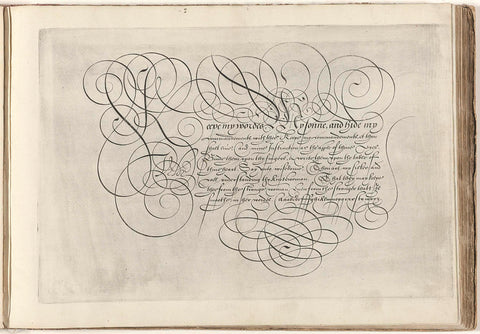 Keepe my wordes, My sonne, and hide my
commandements with thee. Keepe my commandements, & thou
shalt live, and mine instruction as the apple of thine Eyes.
Binde them upon thy fingers, & write them upon the table of
thine heart. Say unto wisedome, Thou art my sister, and
call understanding thy Kinswoman. That they may keepe
thee from the strange woman, Even from the stranger that is
smoothe in her wordes.